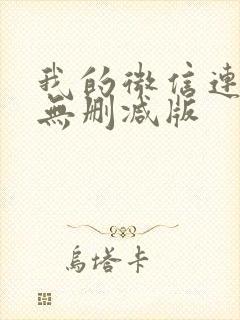 我的微信連
無删减版
烏塔卡